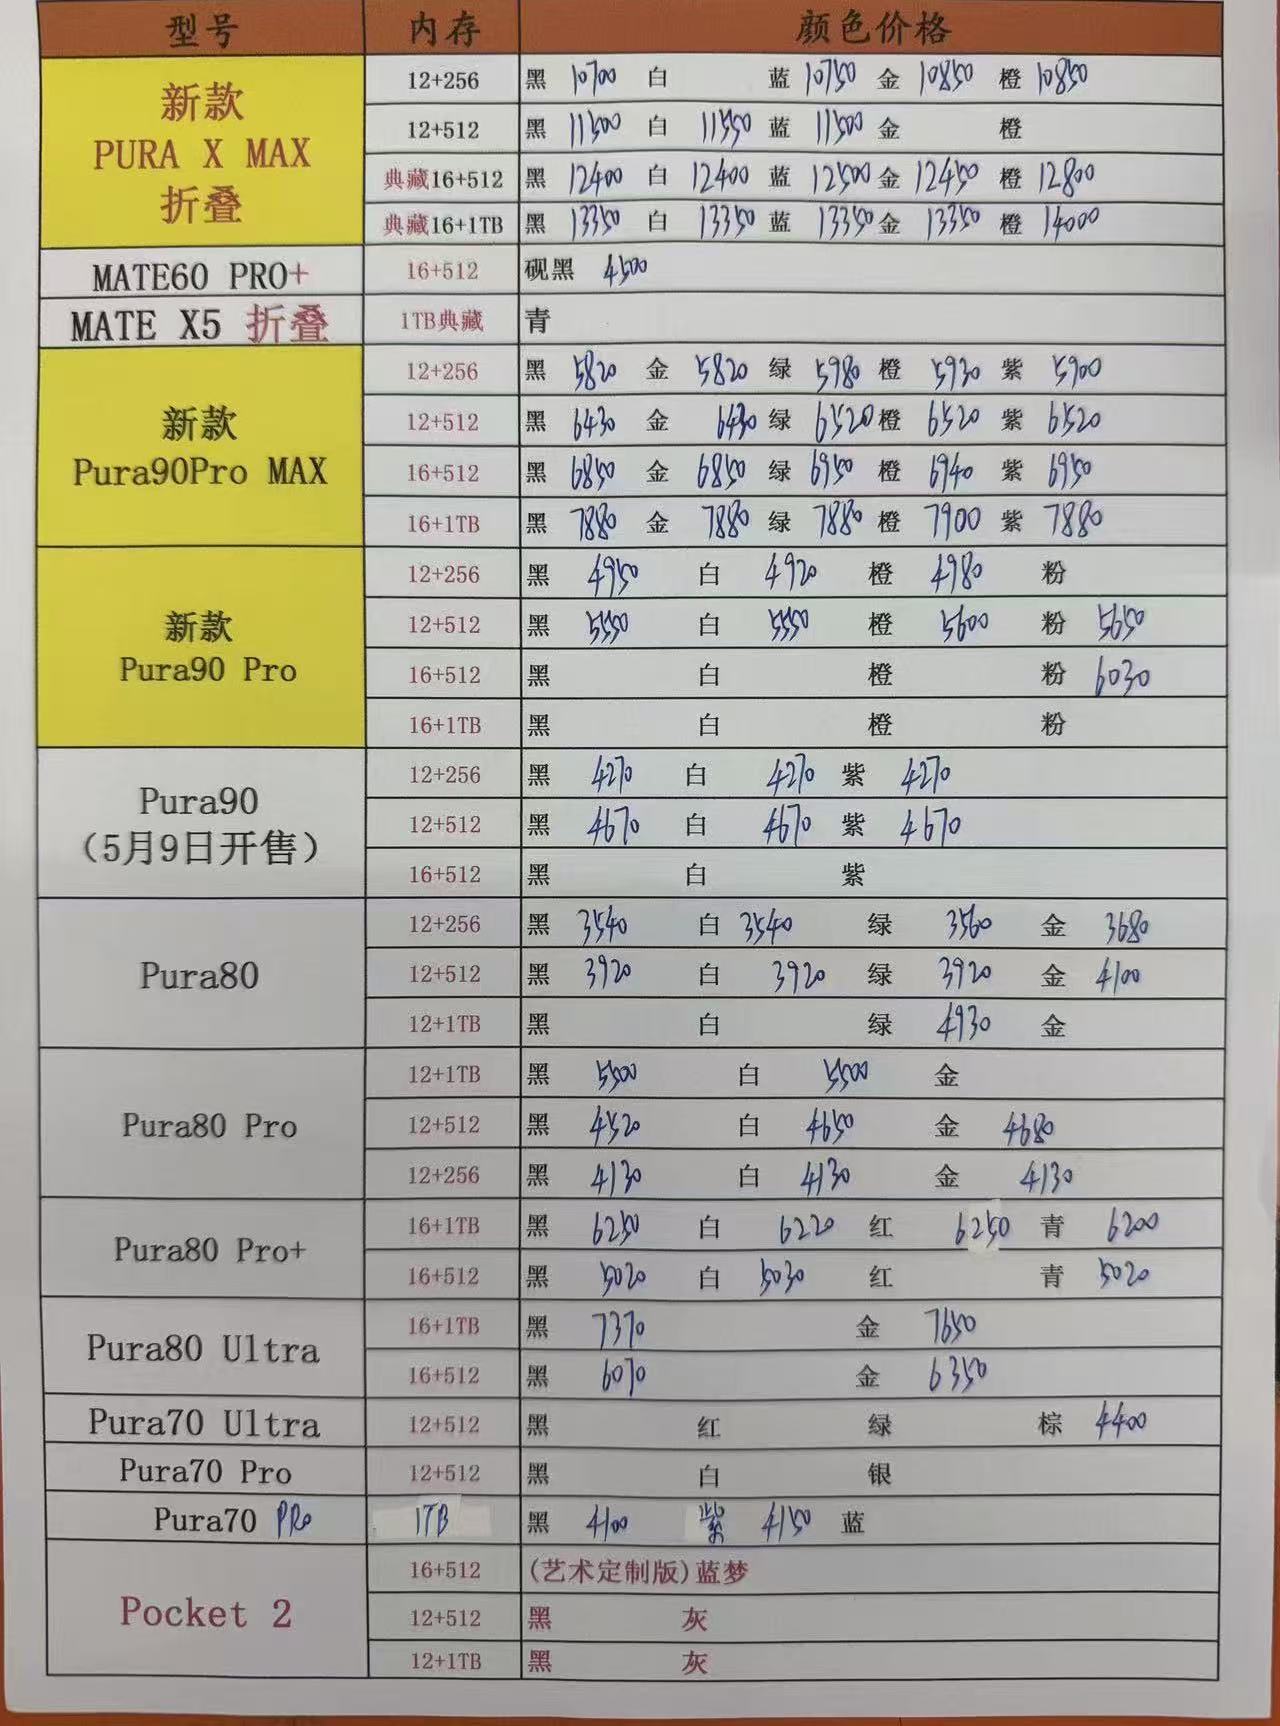 型号 内存 颜色价格
新款 PURA X MAX 折叠
12+256 黑 10700 白 蓝 10750 金 10850 橙 10850
12+512 黑 11500 白 11550 蓝 11500 金 橙
典藏16+512 黑 12400 白 12400 蓝 12500 金 12450 橙 12800
典藏16+1TB 黑 13350 白 13350 蓝 13350 金 13350 橙 14000
MATE60 PRO+ 16+512 砚黑 4500
MATE X5 折叠 1TB典藏 青
新款 Pura90Pro MAX
12+256 黑 5820 金 5820 绿 5980 橙 5930 紫 5900
12+512 黑 6430 金 6430 绿 6520 橙 6520 紫 6520
16+512 黑 6850 金 6850 绿 6950 橙 6940 紫 6950
16+1TB 黑 7880 金 7880 绿 7880 橙 7900 紫 7880
新款 Pura90 Pro
12+256 黑 4950 白 4920 橙 4980 粉
12+512 黑 5550 白 5550 橙 5600 粉 5650
16+512 黑 白 橙 粉 6030
16+1TB 黑 白 橙 粉
Pura90 (5月9日开售)
12+256 黑 4270 白 4270 紫 4270
12+512 黑 4670 白 4670 紫 4670
16+512 黑 白 紫
Pura80
12+256 黑 3540 白 3540 绿 3560 金 3680
12+512 黑 3920 白 3920 绿 3920 金 4100
12+1TB 黑 白 绿 4930 金
Pura80 Pro
12+1TB 黑 5500 白 5500 金
12+512 黑 4520 白 4650 金 4680
12+256 黑 4130 白 4130 金 4130
Pura80 Pro+
16+1TB 黑 6250 白 6220 红 6250 青 6200
16+512 黑 5020 白 5030 红 青 5020
Pura80 Ultra
16+1TB 黑 7370 金 7650
16+512 黑 6070 金 6350
Pura70 Ultra 12+512 黑 红 绿 棕 4400
Pura70 Pro 12+512 黑 白 银
Pura70 PRo 1TB 黑 4100 紫 4150 蓝
Pocket 2
16+512 (艺术定制版)蓝梦
12+512 黑 灰
12+1TB 黑 灰